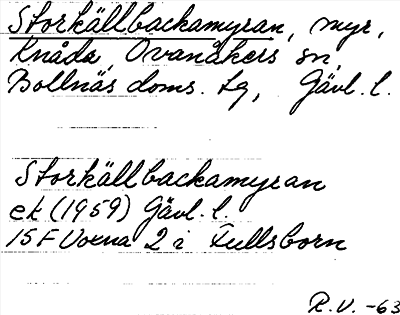 Storkällbackamyran, myr,
Knåda, Ovanåkers sn,
Bollnäs doms. tg, Gävl. l.
Storkällbackamyran
ek (1959) Gävl. l.
15F Voxna 2 i Fullsborn
R.V. -63